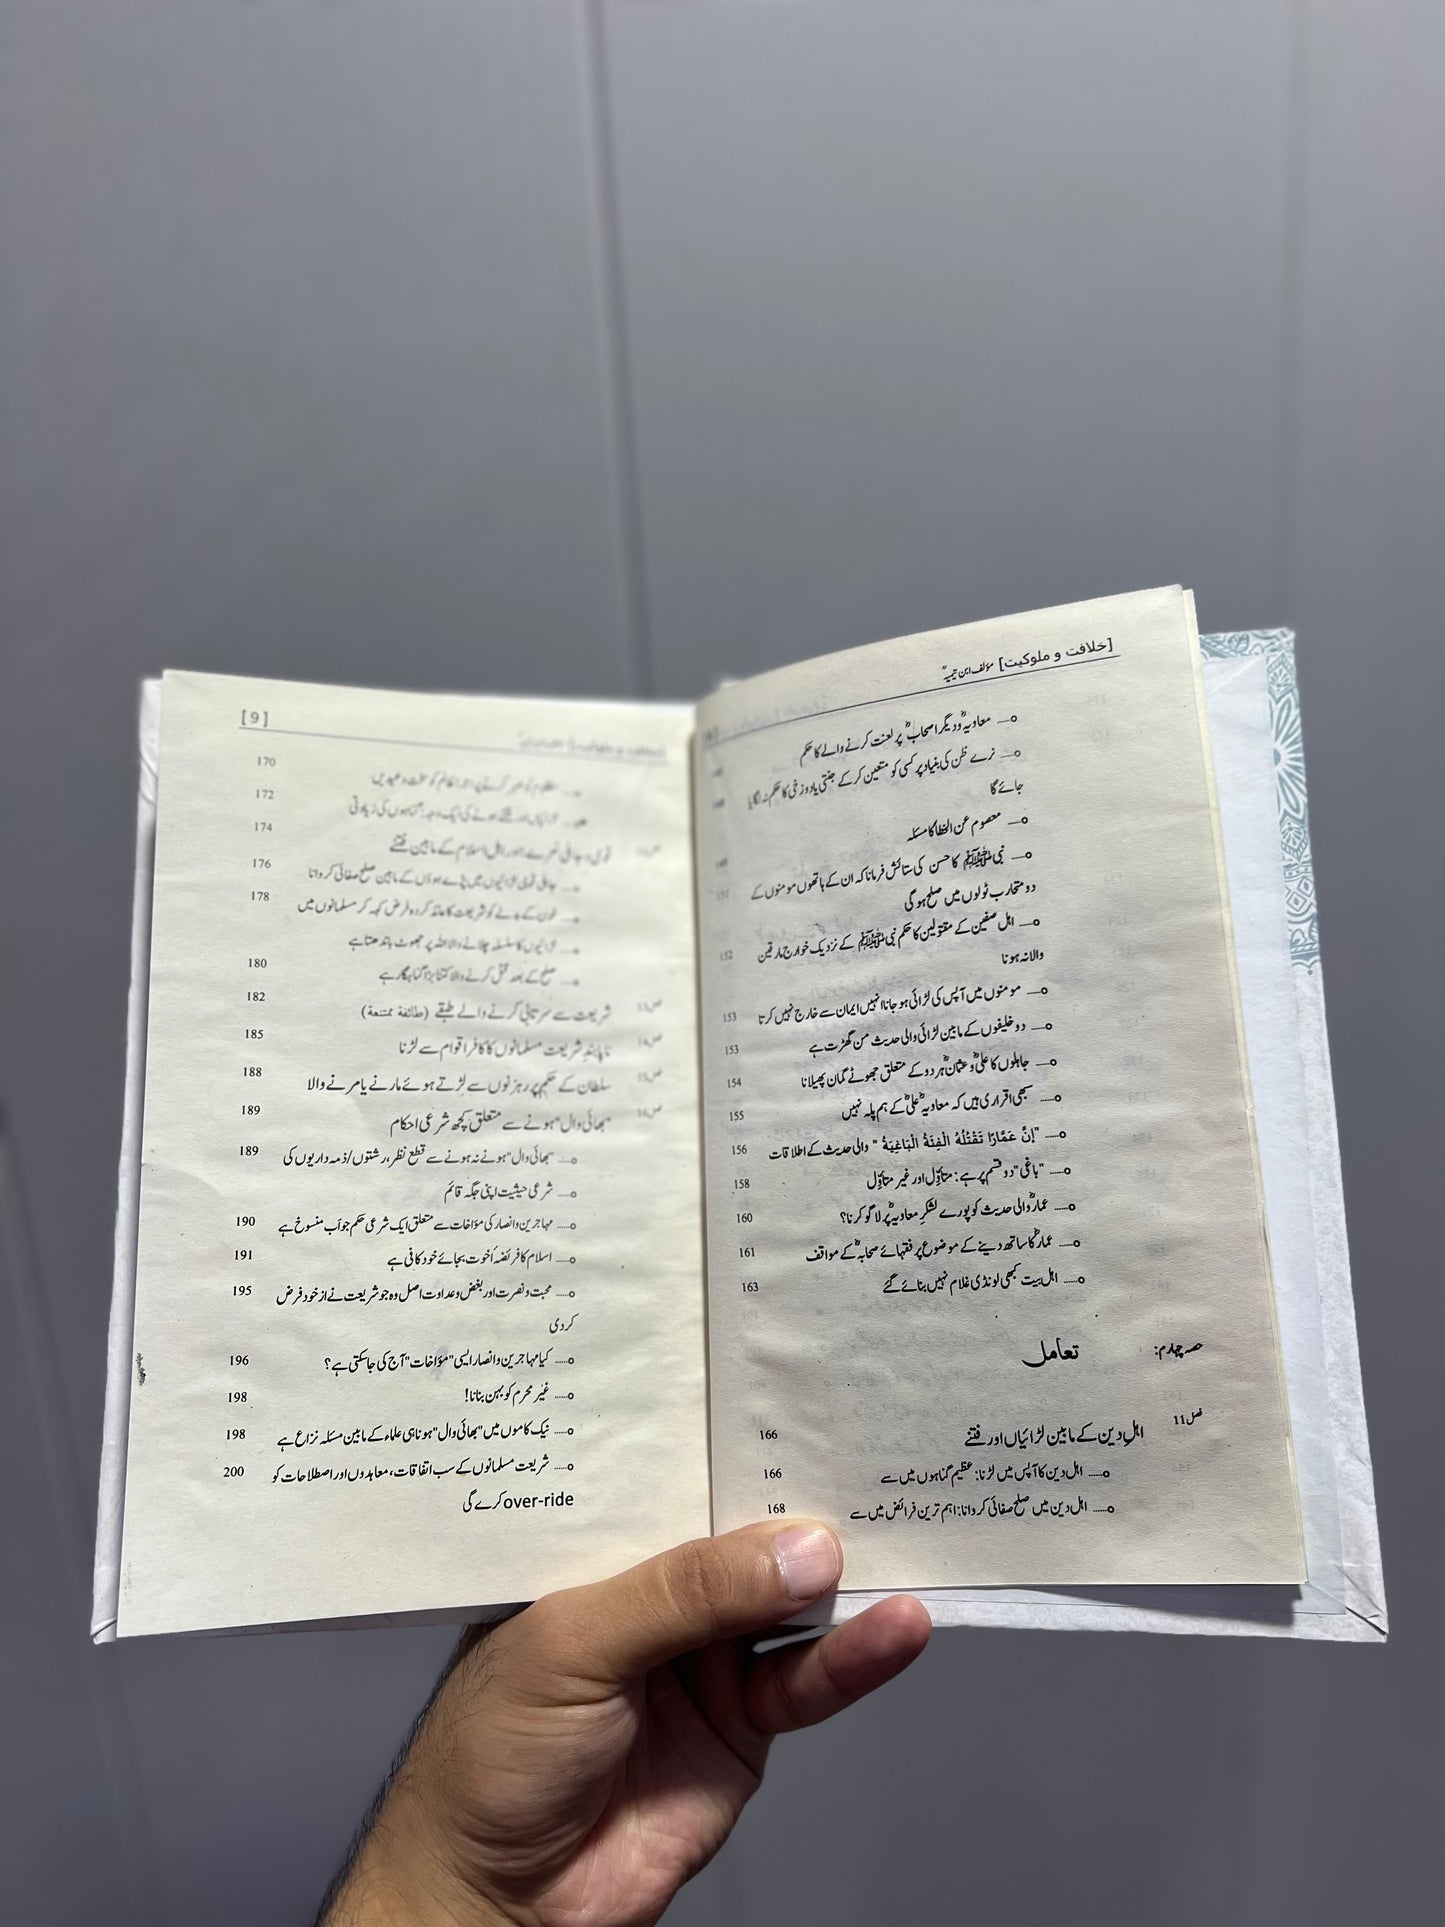 [خلافت و ملوکیت] مؤلف ابن تیمیہؒ
o..... معاویہؓ و دیگر اصحابؓ پر لعنت کرنے والے کا حکم
o..... نرے ظن کی بنیاد پر کسی کو متعین کر کے جنتی یا دوزخی کا حکم نہ لگایا 148
جائے گا
o..... معصوم عن الخطا کا مسئلہ 149
o..... نبی ﷺ کا حسن کی ستائش فرمانا کہ ان کے ہاتھوں مومنوں کے 151
دو متحارب ٹولوں میں صلح ہوگی
o..... اہل صفین کے مقتولین کا حکم نبی ﷺ کے نزدیک خوارج مارقین 152
والا نہ ہونا
o..... مومنوں میں آپس کی لڑائی ہو جانا انہیں ایمان سے خارج نہیں کرتا 153
o..... دو خلیفوں کے مابین لڑائی والی حدیث من گھڑت ہے 153
o..... جاہلوں کا علیؓ و عثمانؓ ہر دو کے متعلق جھوٹے گمان پھیلانا 154
o..... سبھی اقراری ہیں کہ معاویہؓ علیؓ کے ہم پلہ نہیں 155
o..... "إنَّ عَمَّارًا تَقْتُلُهُ الْفِئَةُ الْبَاغِيَةُ" والی حدیث کے اطلاقات 156
o..... "باغی" دو قسم پر ہے: متأوِّل اور غیر متأوِّل 158
o..... عمارؓ والی حدیث کو پورے لشکرِ معاویہؓ پر لاگو کرنا؟ 160
o..... عمارؓ کا ساتھ دینے کے موضوع پر فقہائے صحابہؓ کے مواقف 161
o..... اہل بیت کبھی لونڈی غلام نہیں بنائے گئے 163
حصہ چہارم: تعامل
فصل 11 اہلِ دین کے مابین لڑائیاں اور فتنے 166
o..... اہل دین کا آپس میں لڑنا: عظیم گناہوں میں سے 166
o..... اہل دین میں صلح صفائی کروانا: اہم ترین فرائض میں سے 168
[9]
170
o..... لڑائیاں اور فتنے ہونے کی ایک وجہ: گناہوں کی زیادتی 172
قومی، جاہلی نعرے اور اہل اسلام کے مابین فتنے 174
o..... جاہلی قومی لڑائیوں میں پڑے ہوؤں کے مابین صلح صفائی کروانا 176
o..... خون کے بدلے کو شریعت کا عائد کردہ فرض کہہ کر مسلمانوں میں 178
لڑائیوں کا سلسلہ چلانے والا اللہ پر جھوٹ باندھتا ہے
o..... صلح کے بعد قتل کرنے والا کتنا بڑا گناہگار ہے 180
فصل 13 شریعت سے سرتابی کرنے والے طبقے (طائفة ممتنعة) 182
فصل 14 ناپابندِ شریعت مسلمانوں کا کافر اقوام سے لڑنا 185
فصل 15 سلطان کے حکم پر رہزنوں سے لڑتے ہوئے مارنے یا مرنے والا 188
فصل 16 "بھائی وال" ہونے سے متعلق کچھ شرعی احکام 189
o..... "بھائی وال" ہونے نہ ہونے سے قطع نظر، رشتوں/ذمہ داریوں کی 189
o..... شرعی حیثیت اپنی جگہ قائم
o..... مہاجرین و انصار کی مؤاخات سے متعلق ایک شرعی حکم جو اَب منسوخ ہے 190
o..... اسلام کا فریضۂ اُخوت بجائے خود کافی ہے 191
o..... محبت و نصرت اور بغض و عداوت اصل وہ جو شریعت نے از خود فرض 195
کر دی
o..... کیا مہاجرین و انصار ایسی "مؤاخات" آج کی جاسکتی ہے؟ 196
o..... غیر محرم کو بہن بنانا! 198
o..... نیک کاموں میں "بھائی وال" ہونا ہی علماء کے مابین مسئلہ نزاع ہے 198
o..... شریعت مسلمانوں کے سب اتفاقات، معاہدوں اور اصطلاحات کو 200
over-ride کرے گی